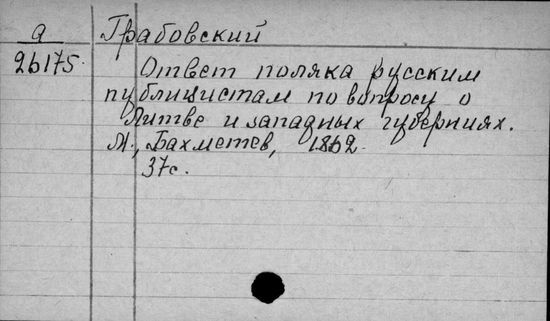 а Грабовский
26175 Ответ поляка русским
публицистам по вопросу о
Литве и западных губерниях.
М., Бахметев, 1862.
37с.